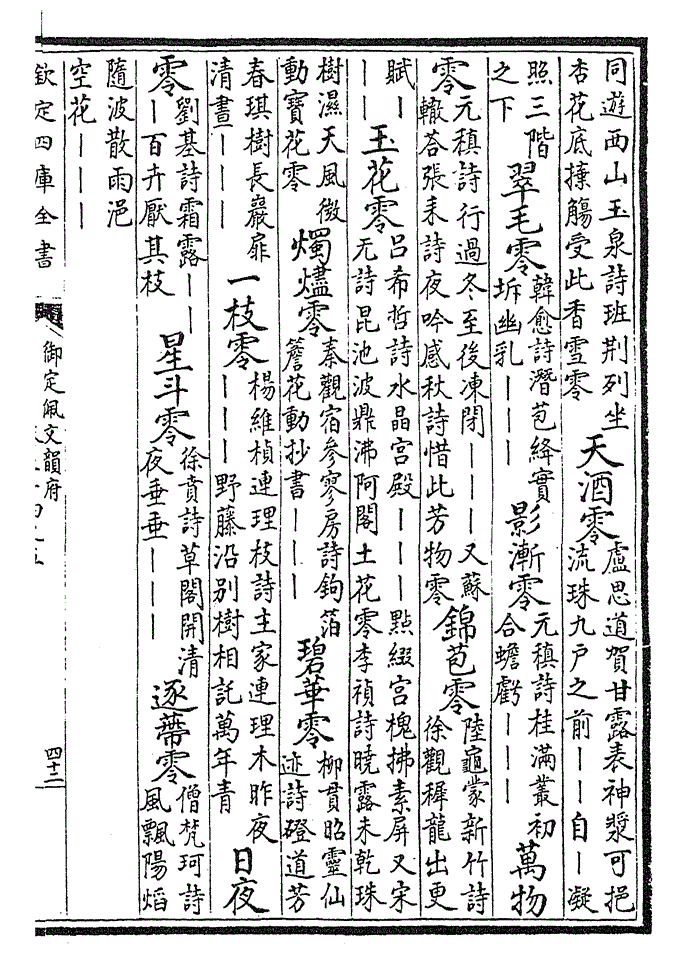 同遊西山玉泉詩班荆列坐杏花底㩦觴受此香雪零 天酒零 盧思道賀甘露表神漿可挹流珠九戶之前——自—凝
照三階之下 翠毛零 韓愈詩潛苞絳實坼幽乳——— 影漸零 元稹詩桂滿叢初合蟾虧——— 萬物
零 元稹詩行過冬至後凍閉———又蘇轍荅張耒詩夜吟感秋詩惜此芳物零 錦苞零 陸龜蒙新竹詩徐觀穉龍出更
賦——— 玉花零 呂希哲詩水晶宮殿———點綴宮槐拂素屏又宋无詩昆池波鼎沸阿閣土花零李禎詩曉露未乾珠
樹濕天風微動寶花零 燭燼零 秦觀宿參寥房詩鉤箔簷花動抄書——— 碧華零 柳貫昭靈仙迹詩磴道芳
春琪樹長巖扉清晝——— 一枝零 楊維楨連理枝詩主家連理木昨夜———野藤沿別樹相託萬年青 日夜
零 劉基詩霜露———百卉厭其枝 星斗零 徐賁詩草閣開清夜垂垂——— 逐蒂零 僧梵珂詩風飄陽焰
隨波散雨浥空花———
欽定四庫全書
御定佩文韻府
四十二